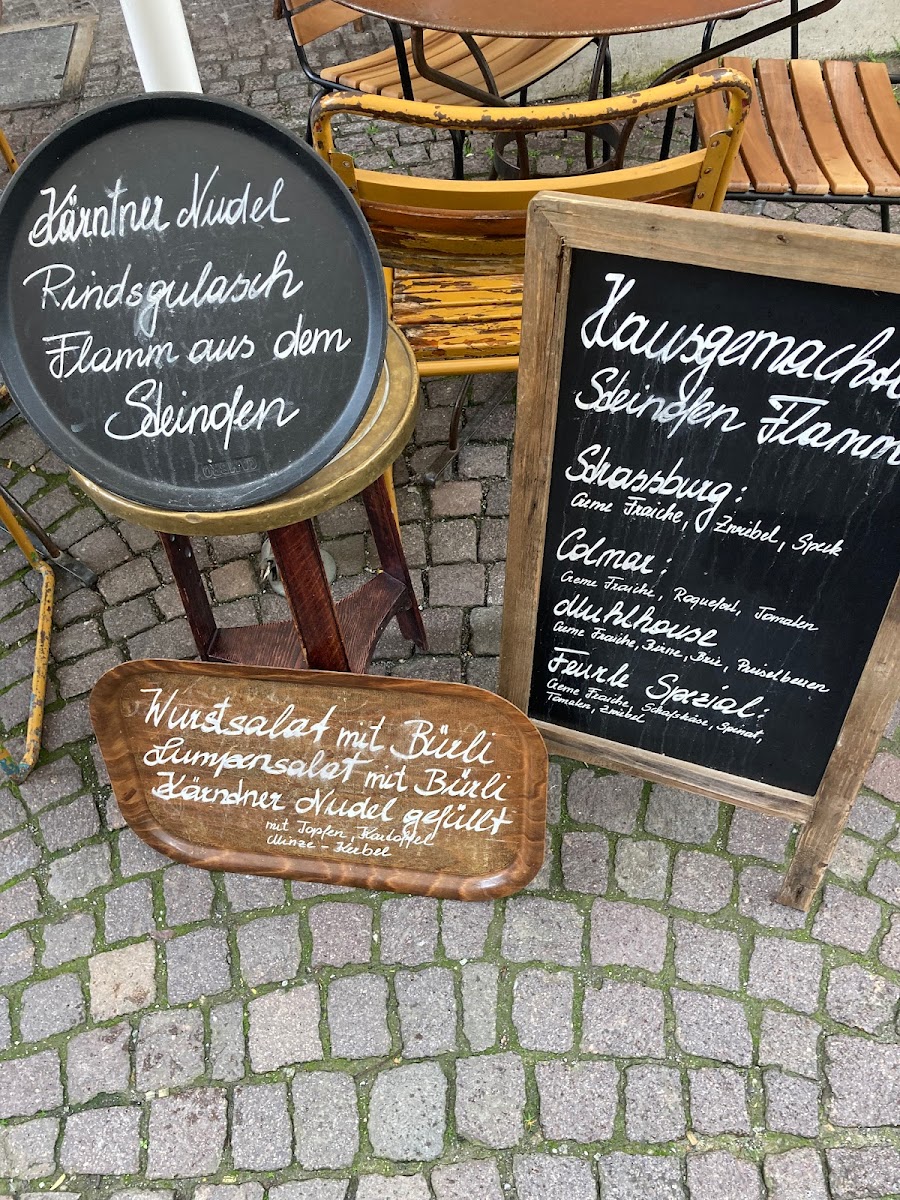 Kärntner Nudel
Rindsgulasch
Flamm aus dem
Steinofen
Hausgemachte
Steinofen Flamm
Strassburg:
Creme Fraiche, Zwiebel, Speck
Colmar:
Creme Fraiche, Roquefort, Tomaten
Muhlhouse
Creme Fraiche, Birne, Brie, Preiselbeeren
Feurle Spezial:
Creme Fraiche, Schafskäse, Spinat,
Tomaten, Zwiebel
Wurstsalat mit Bürli
Lumpensalat mit Bürli
Kärndner Nudel gefüllt
mit Topfen, Kartoffel
Minze - Kerbel